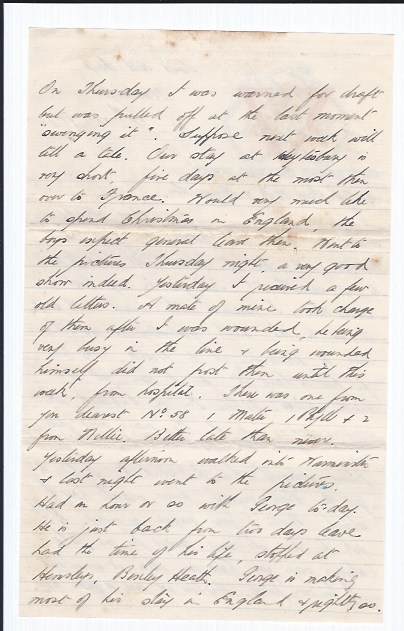 On Thursday I was warned for draft
but was pulled off at the last moment
"swinging it". Suppose next week will
tell a tale. Our stay at Heytesbury is
very short five days at the most then
over to France. Would very much like
to spend Christmas in England, the
boys expect general leave then. Went to
the pictures Thursday night, a very good
show indeed. Yesterday I received a few
old letters. A mate of mine took charge
of them after I was wounded, he being
very busy in the line & being wounded
himself did not post them until this
week, from hospital. There was one from
you dearest No 58 1 Mater 1 Phyll & 2
from Nellie. Better late than never.
Yesterday afternoon walked into Warminster
& last night went to the pictures.
Had an hour or so with George to-day.
He is just back from two days leave
had the time of his life, stopped at
Hensleys, Bexley Heath. George is making
most of his stay in England & rightly so.